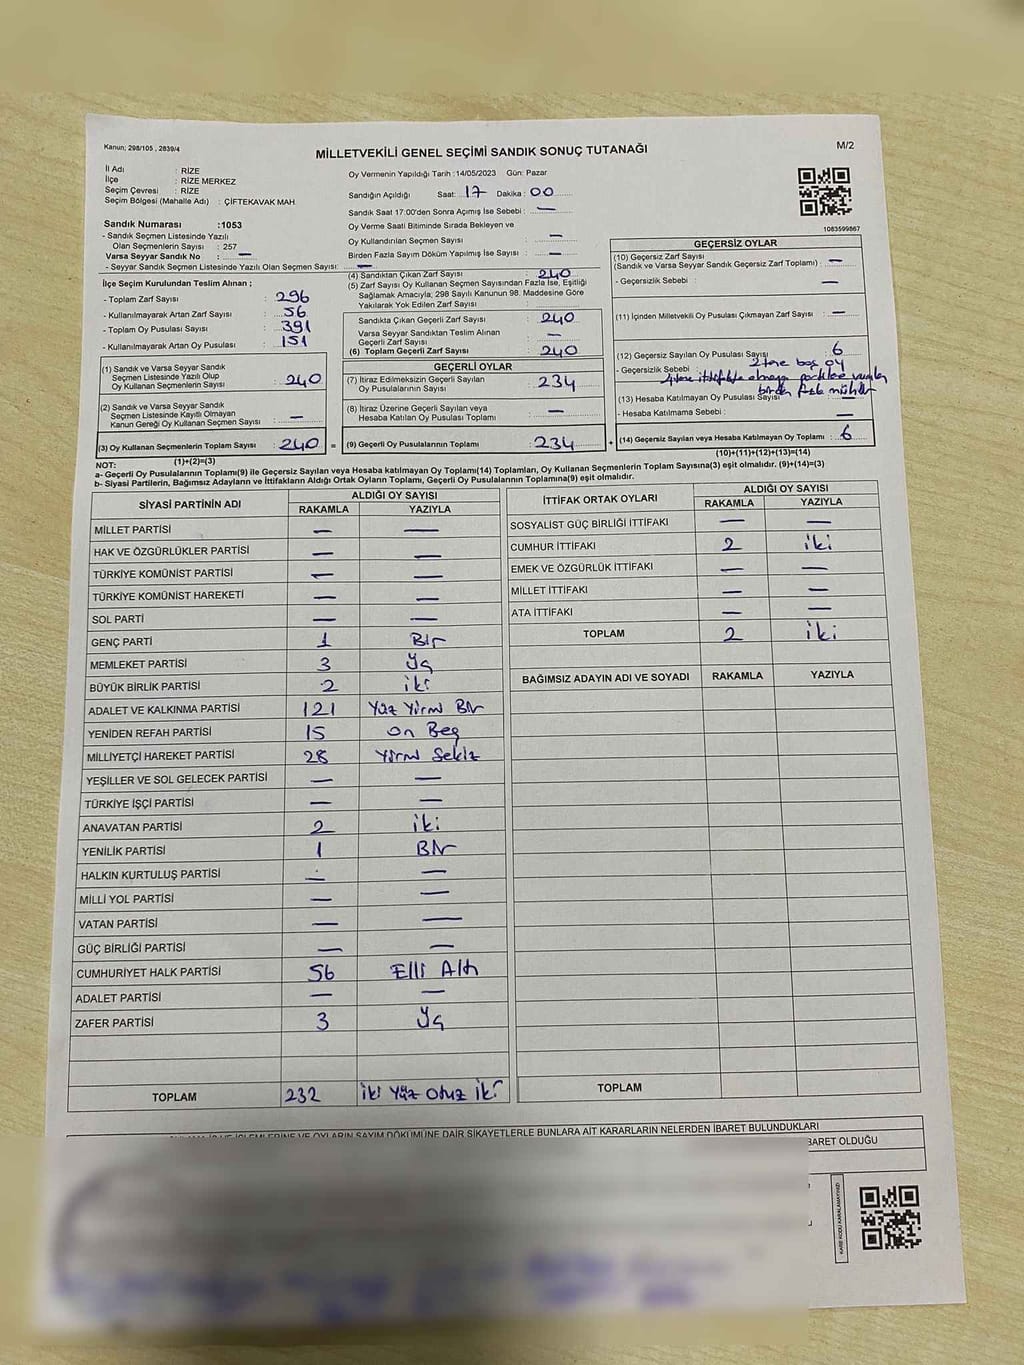 Kanun; 298/105 , 2839/4
MİLLETVEKİLİ GENEL SEÇİMİ SANDIK SONUÇ TUTANAĞI
M/2
İl Adı : RİZE
İlçe : RİZE MERKEZ
Seçim Çevresi : RİZE
Seçim Bölgesi (Mahalle Adı) : ÇİFTEKAVAK MAH.
Sandık Numarası :1053
- Sandık Seçmen Listesinde Yazılı
Olan Seçmenlerin Sayısı : 257
Varsa Seyyar Sandık No : —
- Seyyar Sandık Seçmen Listesinde Yazılı Olan Seçmen Sayısı: —
İlçe Seçim Kurulundan Teslim Alınan ;
- Toplam Zarf Sayısı : 296
- Kullanılmayarak Artan Zarf Sayısı : 56
- Toplam Oy Pusulası Sayısı : 391
- Kullanılmayarak Artan Oy Pusulası : 151
(1) Sandık ve Varsa Seyyar Sandık
Seçmen Listesinde Yazılı Olup
Oy Kullanan Seçmenlerin Sayısı : 240
(2) Sandık ve Varsa Seyyar Sandık
Seçmen Listesinde Kayıtlı Olmayan
Kanun Gereği Oy Kullanan Seçmen Sayısı : —
(3) Oy Kullanan Seçmenlerin Toplam Sayısı : 240 =
(1)+(2)=(3)
Oy Vermenin Yapıldığı Tarih :14/05/2023 Gün: Pazar
Sandığın Açıldığı Saat: 17 Dakika : 00
Sandık Saat 17:00'den Sonra Açımış İse Sebebi : —
Oy Verme Saati Bitiminde Sırada Bekleyen ve
Oy Kullandırılan Seçmen Sayısı : —
Birden Fazla Sayım Döküm Yapılmış İse Sayısı : —
(4) Sandıktan Çıkan Zarf Sayısı : 240
(5) Zarf Sayısı Oy Kullanan Seçmen Sayısından Fazla İse, Eşitliği
Sağlamak Amacıyla; 298 Sayılı Kanunun 98. Maddesine Göre
Yakılarak Yok Edilen Zarf Sayısı :
Sandıkta Çıkan Geçerli Zarf Sayısı : 240
Varsa Seyyar Sandıktan Teslim Alınan
Geçerli Zarf Sayısı : —
(6) Toplam Geçerli Zarf Sayısı : 240
GEÇERLİ OYLAR
(7) İtiraz Edilmeksizin Geçerli Sayılan
Oy Pusulalarının Sayısı : 234
(8) İtiraz Üzerine Geçerli Sayılan veya
Hesaba Katılan Oy Pusulası Toplamı : —
(9) Geçerli Oy Pusulalarının Toplamı : 234 +
1083599867
GEÇERSİZ OYLAR
(10) Geçersiz Zarf Sayısı
(Sandık ve Varsa Seyyar Sandık Geçersiz Zarf Toplamı) : —
- Geçersizlik Sebebi : —
(11) İçinden Milletvekili Oy Pusulası Çıkmayan Zarf Sayısı : —
(12) Geçersiz Sayılan Oy Pusulası Sayısı : 6
- Geçersizlik Sebebi : 2 tane boş oy
birden fazla mühür
(13) Hesaba Katılmayan Oy Pusulası Sayısı : —
- Hesaba Katılmama Sebebi : —
(14) Geçersiz Sayılan veya Hesaba Katılmayan Oy Toplamı : 6
(10)+(11)+(12)+(13)=(14)
NOT:
a- Geçerli Oy Pusulalarının Toplamı(9) ile Geçersiz Sayılan veya Hesaba katılmayan Oy Toplamı(14) Toplamları, Oy Kullanan Seçmenlerin Toplam Sayısına(3) eşit olmalıdır. (9)+(14)=(3)
b- Siyasi Partilerin, Bağımsız Adayların ve İttifakların Aldığı Ortak Oyların Toplamı, Geçerli Oy Pusulalarının Toplamına(9) eşit olmalıdır.
SİYASİ PARTİNİN ADI ALDIĞI OY SAYISI
RAKAMLA YAZIYLA
MİLLET PARTİSİ — —
HAK VE ÖZGÜRLÜKLER PARTİSİ — —
TÜRKİYE KOMÜNİST PARTİSİ — —
TÜRKİYE KOMÜNİST HAREKETİ — —
SOL PARTİ — —
GENÇ PARTİ 1 Bir
MEMLEKET PARTİSİ 3 Üç
BÜYÜK BİRLİK PARTİSİ 2 iki
ADALET VE KALKINMA PARTİSİ 121 Yüz Yirmi Bir
YENİDEN REFAH PARTİSİ 15 On Beş
MİLLİYETÇİ HAREKET PARTİSİ 28 Yirmi Sekiz
YEŞİLLER VE SOL GELECEK PARTİSİ — —
TÜRKİYE İŞÇİ PARTİSİ — —
ANAVATAN PARTİSİ 2 iki
YENİLİK PARTİSİ 1 Bir
HALKIN KURTULUŞ PARTİSİ — —
MİLLİ YOL PARTİSİ — —
VATAN PARTİSİ — —
GÜÇ BİRLİĞİ PARTİSİ — —
CUMHURİYET HALK PARTİSİ 56 Elli Altı
ADALET PARTİSİ — —
ZAFER PARTİSİ 3 Üç
TOPLAM 232 iki Yüz Otuz iki
İTTİFAK ORTAK OYLARI ALDIĞI OY SAYISI
RAKAMLA YAZIYLA
SOSYALİST GÜÇ BİRLİĞİ İTTİFAKI — —
CUMHUR İTTİFAKI 2 iki
EMEK VE ÖZGÜRLÜK İTTİFAKI — —
MİLLET İTTİFAKI — —
ATA İTTİFAKI — —
TOPLAM 2 iki
BAĞIMSIZ ADAYIN ADI VE SOYADI RAKAMLA YAZIYLA
TOPLAM
İŞLEMLERİNE VE OYLARIN SAYIM DÖKÜMÜNE DAİR ŞİKAYETLERLE BUNLARA AİT KARARLARIN NELERDEN İBARET BULUNDUKLARI
İBARET OLDUĞU
KARE KODU KARALAMAYINIZ!